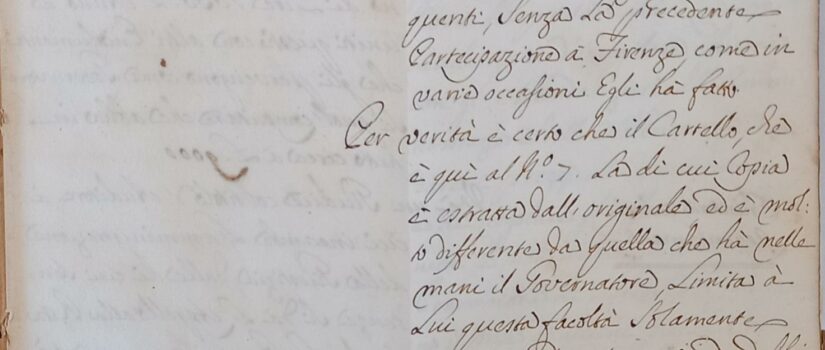 quenti, senza la precedente
Partecipazione à Firenze, come in
varie occasioni Egli ha fatto.
Per verità è certo che il Cartello, che
è quì al N.º 7. La di cui Copia
è estratta dall'originale ed è mol:
to differente da quella che hà nelle
mani il Governatore, Limita à
Lui questa facoltà Solamente